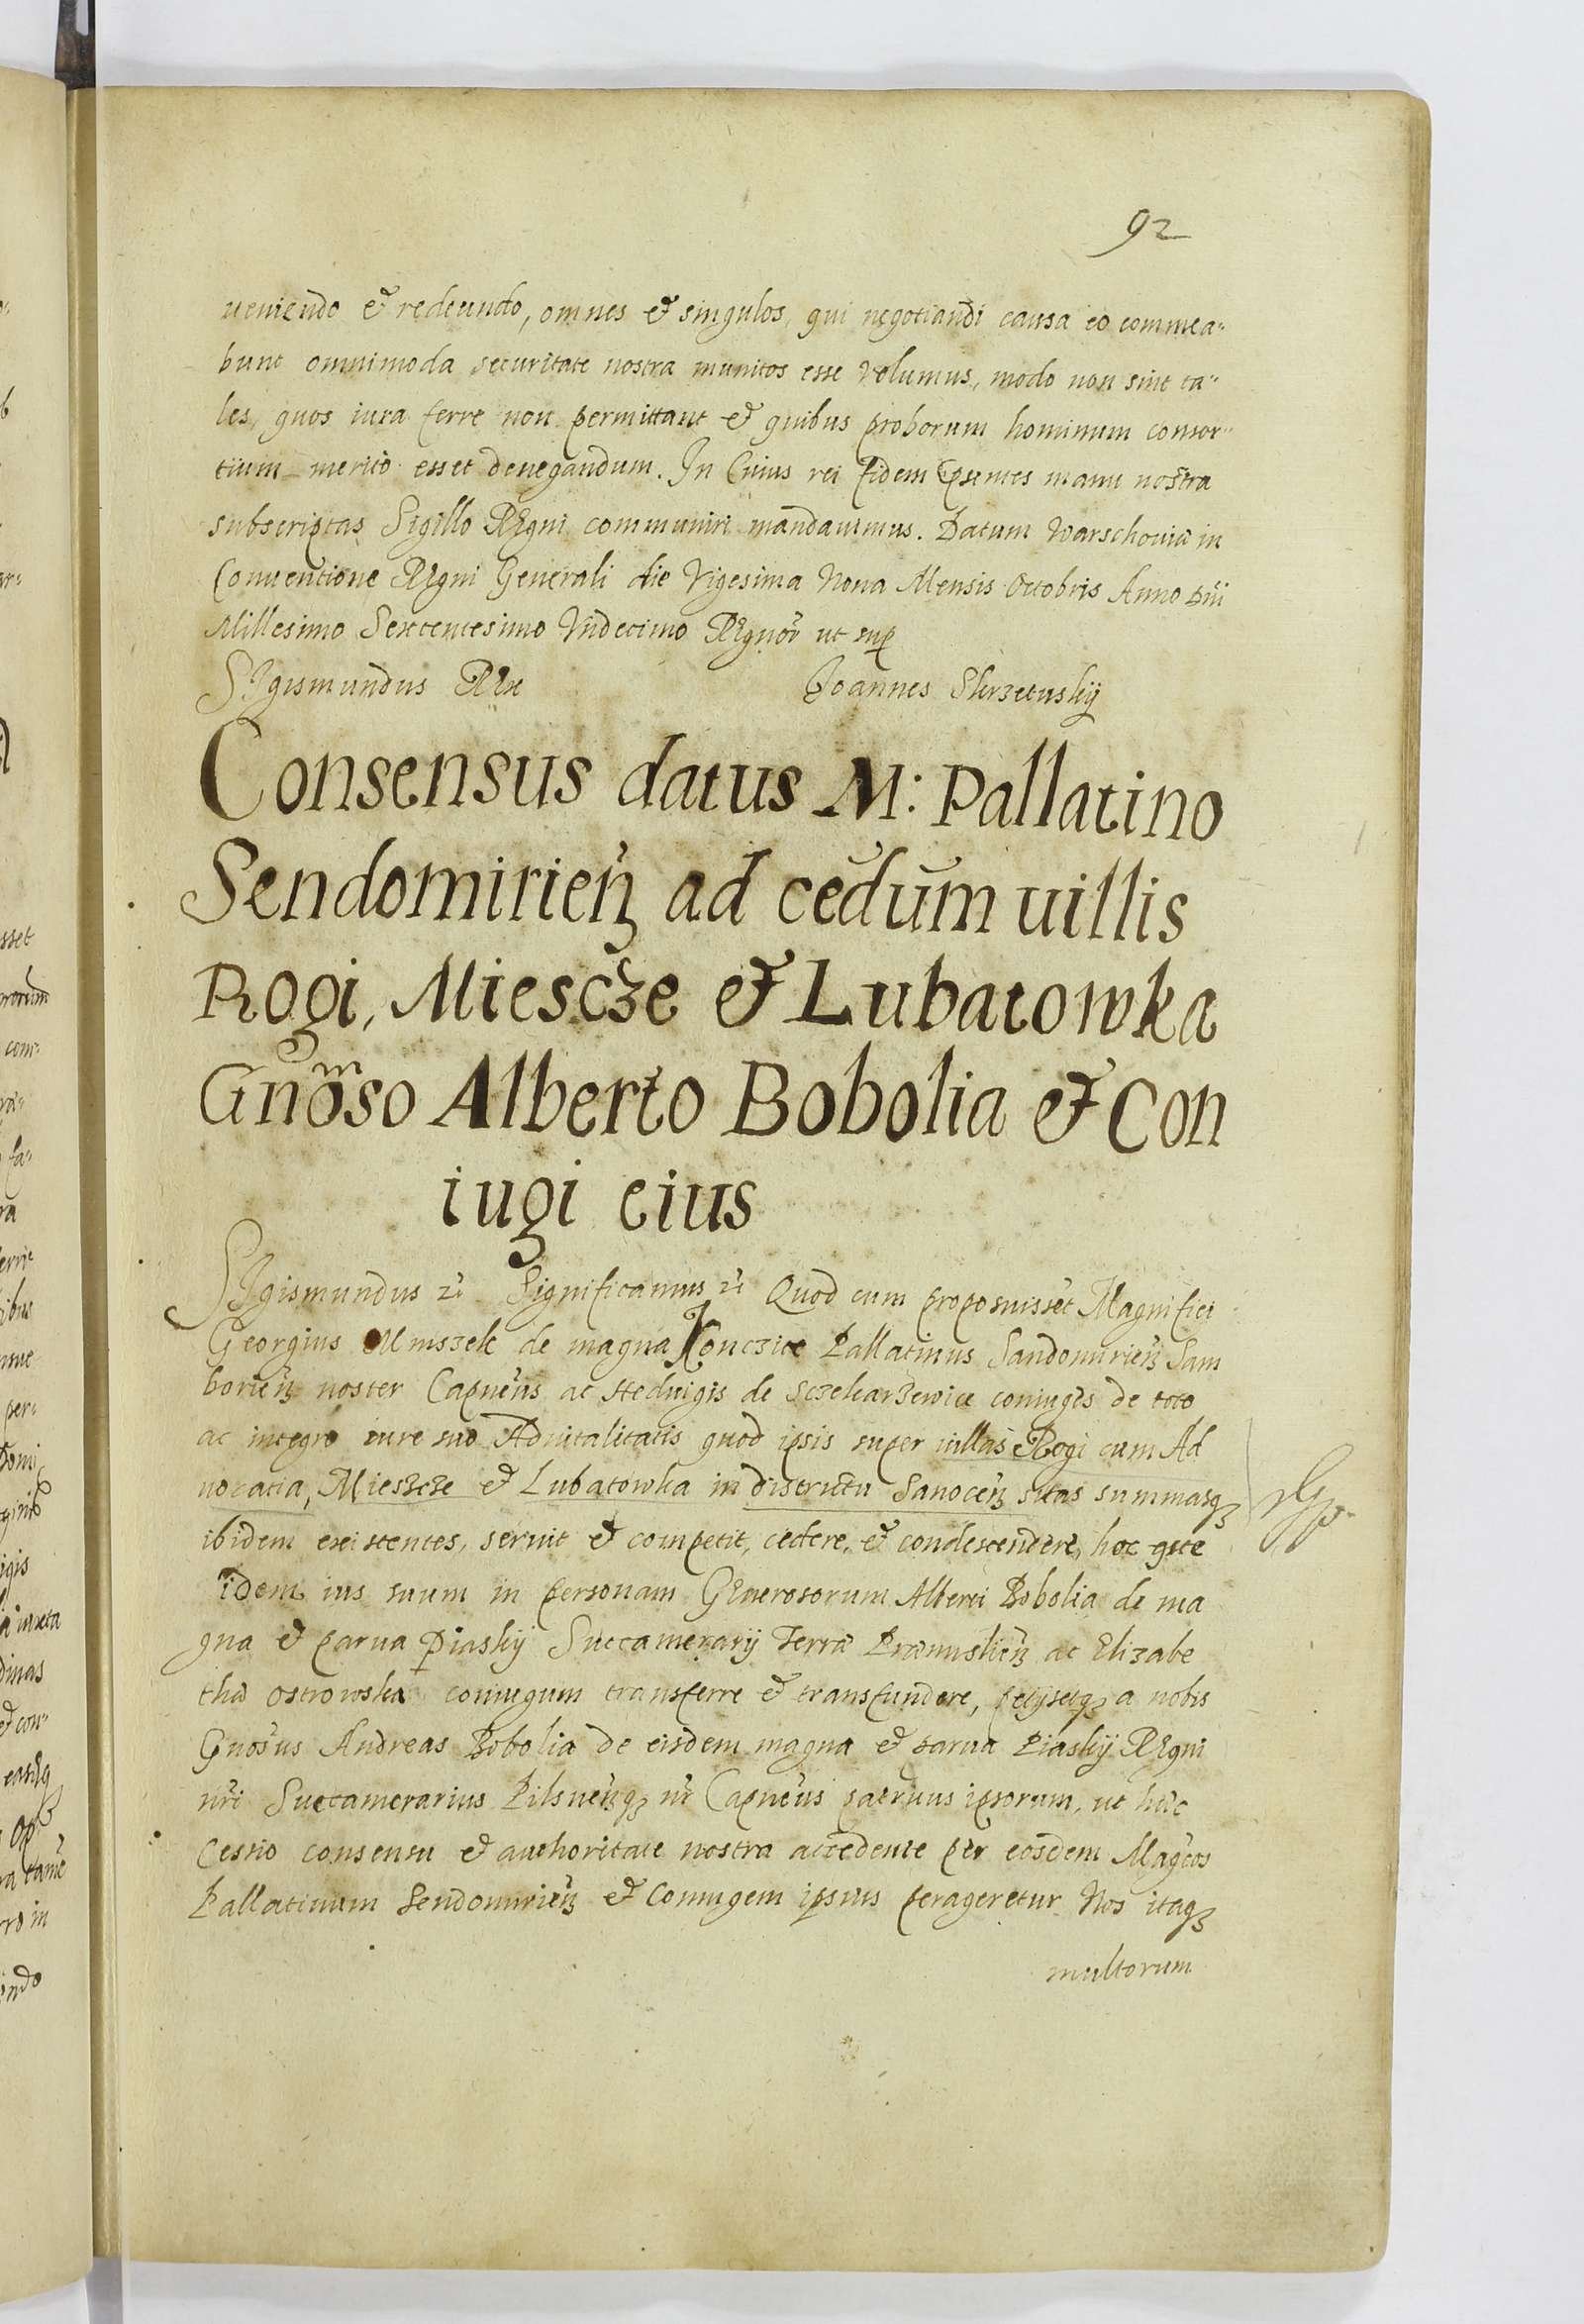 92
ueniendo & redeundo, omnes & singulos, qui negotiandi causa eo commea-
bunt omnimoda securitate nostra munitos esse volumus, modo non sint ta-
les, quos iura ferre non permittant & quibus proborum hominum consor-
tium merito esset denegandum. In Cuius rei fidem pñtes manu nostra
subscriptas Sigillo REgni communiri mandauimus. Datum Warschouiæ in
Conuentione REgni Generali die Vigesima Nona Mensis Octobris Anno Dñi
Millesimo Sexcentesimo Vndecimo REgnoꝝ ut sup
SIgismundus REx Joannes Skrzetuskij
Consensus datus M: Pallatino
Sendomirieñ ad cedum uillis
Rogi, Miescze & Lubatowka
Gnõso Alberto Bobolia & Con
iugi eius
SIgismundus Significamus Quod cum proposuisset Magnifici
Georgius Mniszek de magna Konczice Pallatinus Sandomirieñ Sam
borieñ noster Capneũs ac Heduigis de Sczekarzewice coniuges de toto
ac integro iure suo Aduitalitatis quod ipsis super uillas Rogi cum Ad
uocatia, Mieszcze & Lubatowka in districtu Sanoceñ sitas summasqꝫ
ibidem existentes, seruit & competit, cedere, & condescendere, hoc
idem ius suum in personam GEnerosorum Alberti Bobolia de ma
gna & parua Piaskij Succamerarij Terræ Præmislieñ ac Elizabe
thæ Ostrowska coniugum transferre & transfundere, petijsetqꝫ a nobis
Gnosus Andreas Bobolia de eisdem magna & parua Piaskij REgni
nri Succamerarius Pilsneñqꝫ nr Capneus patruus ipsorum, ut hæc
Cessio consensu & authoritate nostra accedente per eosdem Magcos
Pallatinum Sendomirieñ & Coniugem ipsius perageretur Nos itaqꝫ
multorum